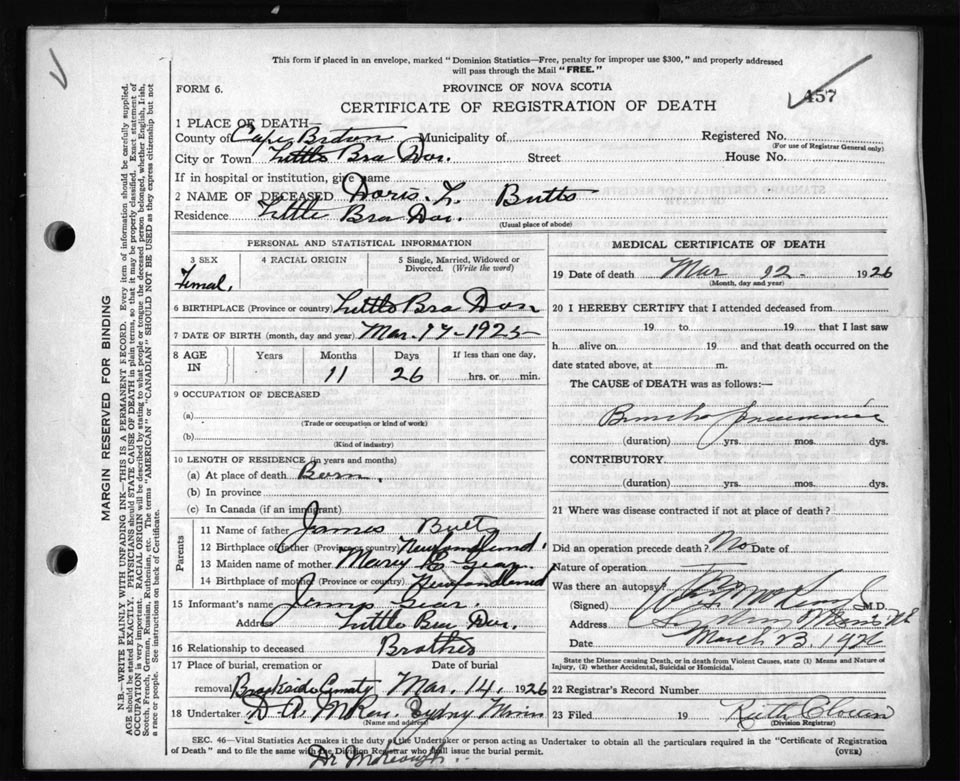 This form if placed in an envelope, marked "Dominion Statistics—Free, penalty for improper use $300," and properly addressed
will pass through the Mail "FREE."
FORM 6.
PROVINCE OF NOVA SCOTIA
457
CERTIFICATE OF REGISTRATION OF DEATH
1 PLACE OF DEATH—
County of Cape Breton Municipality of Registered No.
(For use of Registrar General only)
City or Town Little Bra Dor. Street House No.
If in hospital or institution, give name
2 NAME OF DECEASED Doris. L. Butts
Residence Little Bra Dor.
(Usual place of abode)
PERSONAL AND STATISTICAL INFORMATION
3 SEX 4 RACIAL ORIGIN 5 Single, Married, Widowed or
Divorced. (Write the word)
Femal.
6 BIRTHPLACE (Province or country) Little Bra Dor
7 DATE OF BIRTH (month, day and year) Mar. 17-1925
8 AGE IN Years Months Days If less than one day,
11 26 hrs. or min.
9 OCCUPATION OF DECEASED
(a)
(Trade or occupation or kind of work)
(b)
(Kind of industry)
10 LENGTH OF RESIDENCE (in years and months)
(a) At place of death Born.
(b) In province
(c) In Canada (if an immigrant)
Parents
11 Name of father James Butts
12 Birthplace of father (Province or country) Newfoundland.
13 Maiden name of mother Mary E. Gear
14 Birthplace of mother (Province or country) Newfoundland
15 Informant's name Gear.
Address Little Bra Dor.
16 Relationship to deceased Brother
17 Place of burial, cremation or Date of burial
removal Brookside Mar. 14. 1926
18 Undertaker D. A. Sydney Mines
(Name and address)
MEDICAL CERTIFICATE OF DEATH
19 Date of death Mar 12- 1926
(Month, day and year)
20 I HEREBY CERTIFY that I attended deceased from
19 to 19 that I last saw
h alive on 19 and that death occurred on the
date stated above, at m.
The CAUSE of DEATH was as follows:—
Broncho pneumonia
(duration) yrs. mos. dys.
CONTRIBUTORY
(duration) yrs. mos. dys.
21 Where was disease contracted if not at place of death?
Did an operation precede death? No Date of
Nature of operation
Was there an autopsy?
(Signed) M.D.
Address Sydney Mines NS
Date March 13. 1926
State the Disease causing Death, or in death from Violent Causes, state (1) Means and Nature of
Injury, (2) whether Accidental, Suicidal or Homicidal.
22 Registrar's Record Number
23 Filed 19 Ruth
(Division Registrar)
SEC. 46—Vital Statistics Act makes it the duty of the Undertaker or person acting as Undertaker to obtain all the particulars required in the "Certificate of Registration
of Death" and to file the same with the Division Registrar who shall issue the burial permit. (OVER)
Dr McKeough.
MARGIN RESERVED FOR BINDING
N.B.—WRITE PLAINLY WITH UNFADING INK—THIS IS A PERMANENT RECORD. Every item of information should be carefully supplied.
AGE should be stated EXACTLY. PHYSICIANS should STATE CAUSE OF DEATH in plain terms, so that it may be properly classified. Exact statement of
OCCUPATION is very important. RACIAL ORIGIN will be described by stating to what people or tongue the deceased person belonged, whether English, Irish,
Scotch, French, German, Russian, Ruthenian, etc. The terms "AMERICAN" or "CANADIAN" SHOULD NOT BE USED as they express citizenship but not
a race or people. See instructions on back of Certificate.